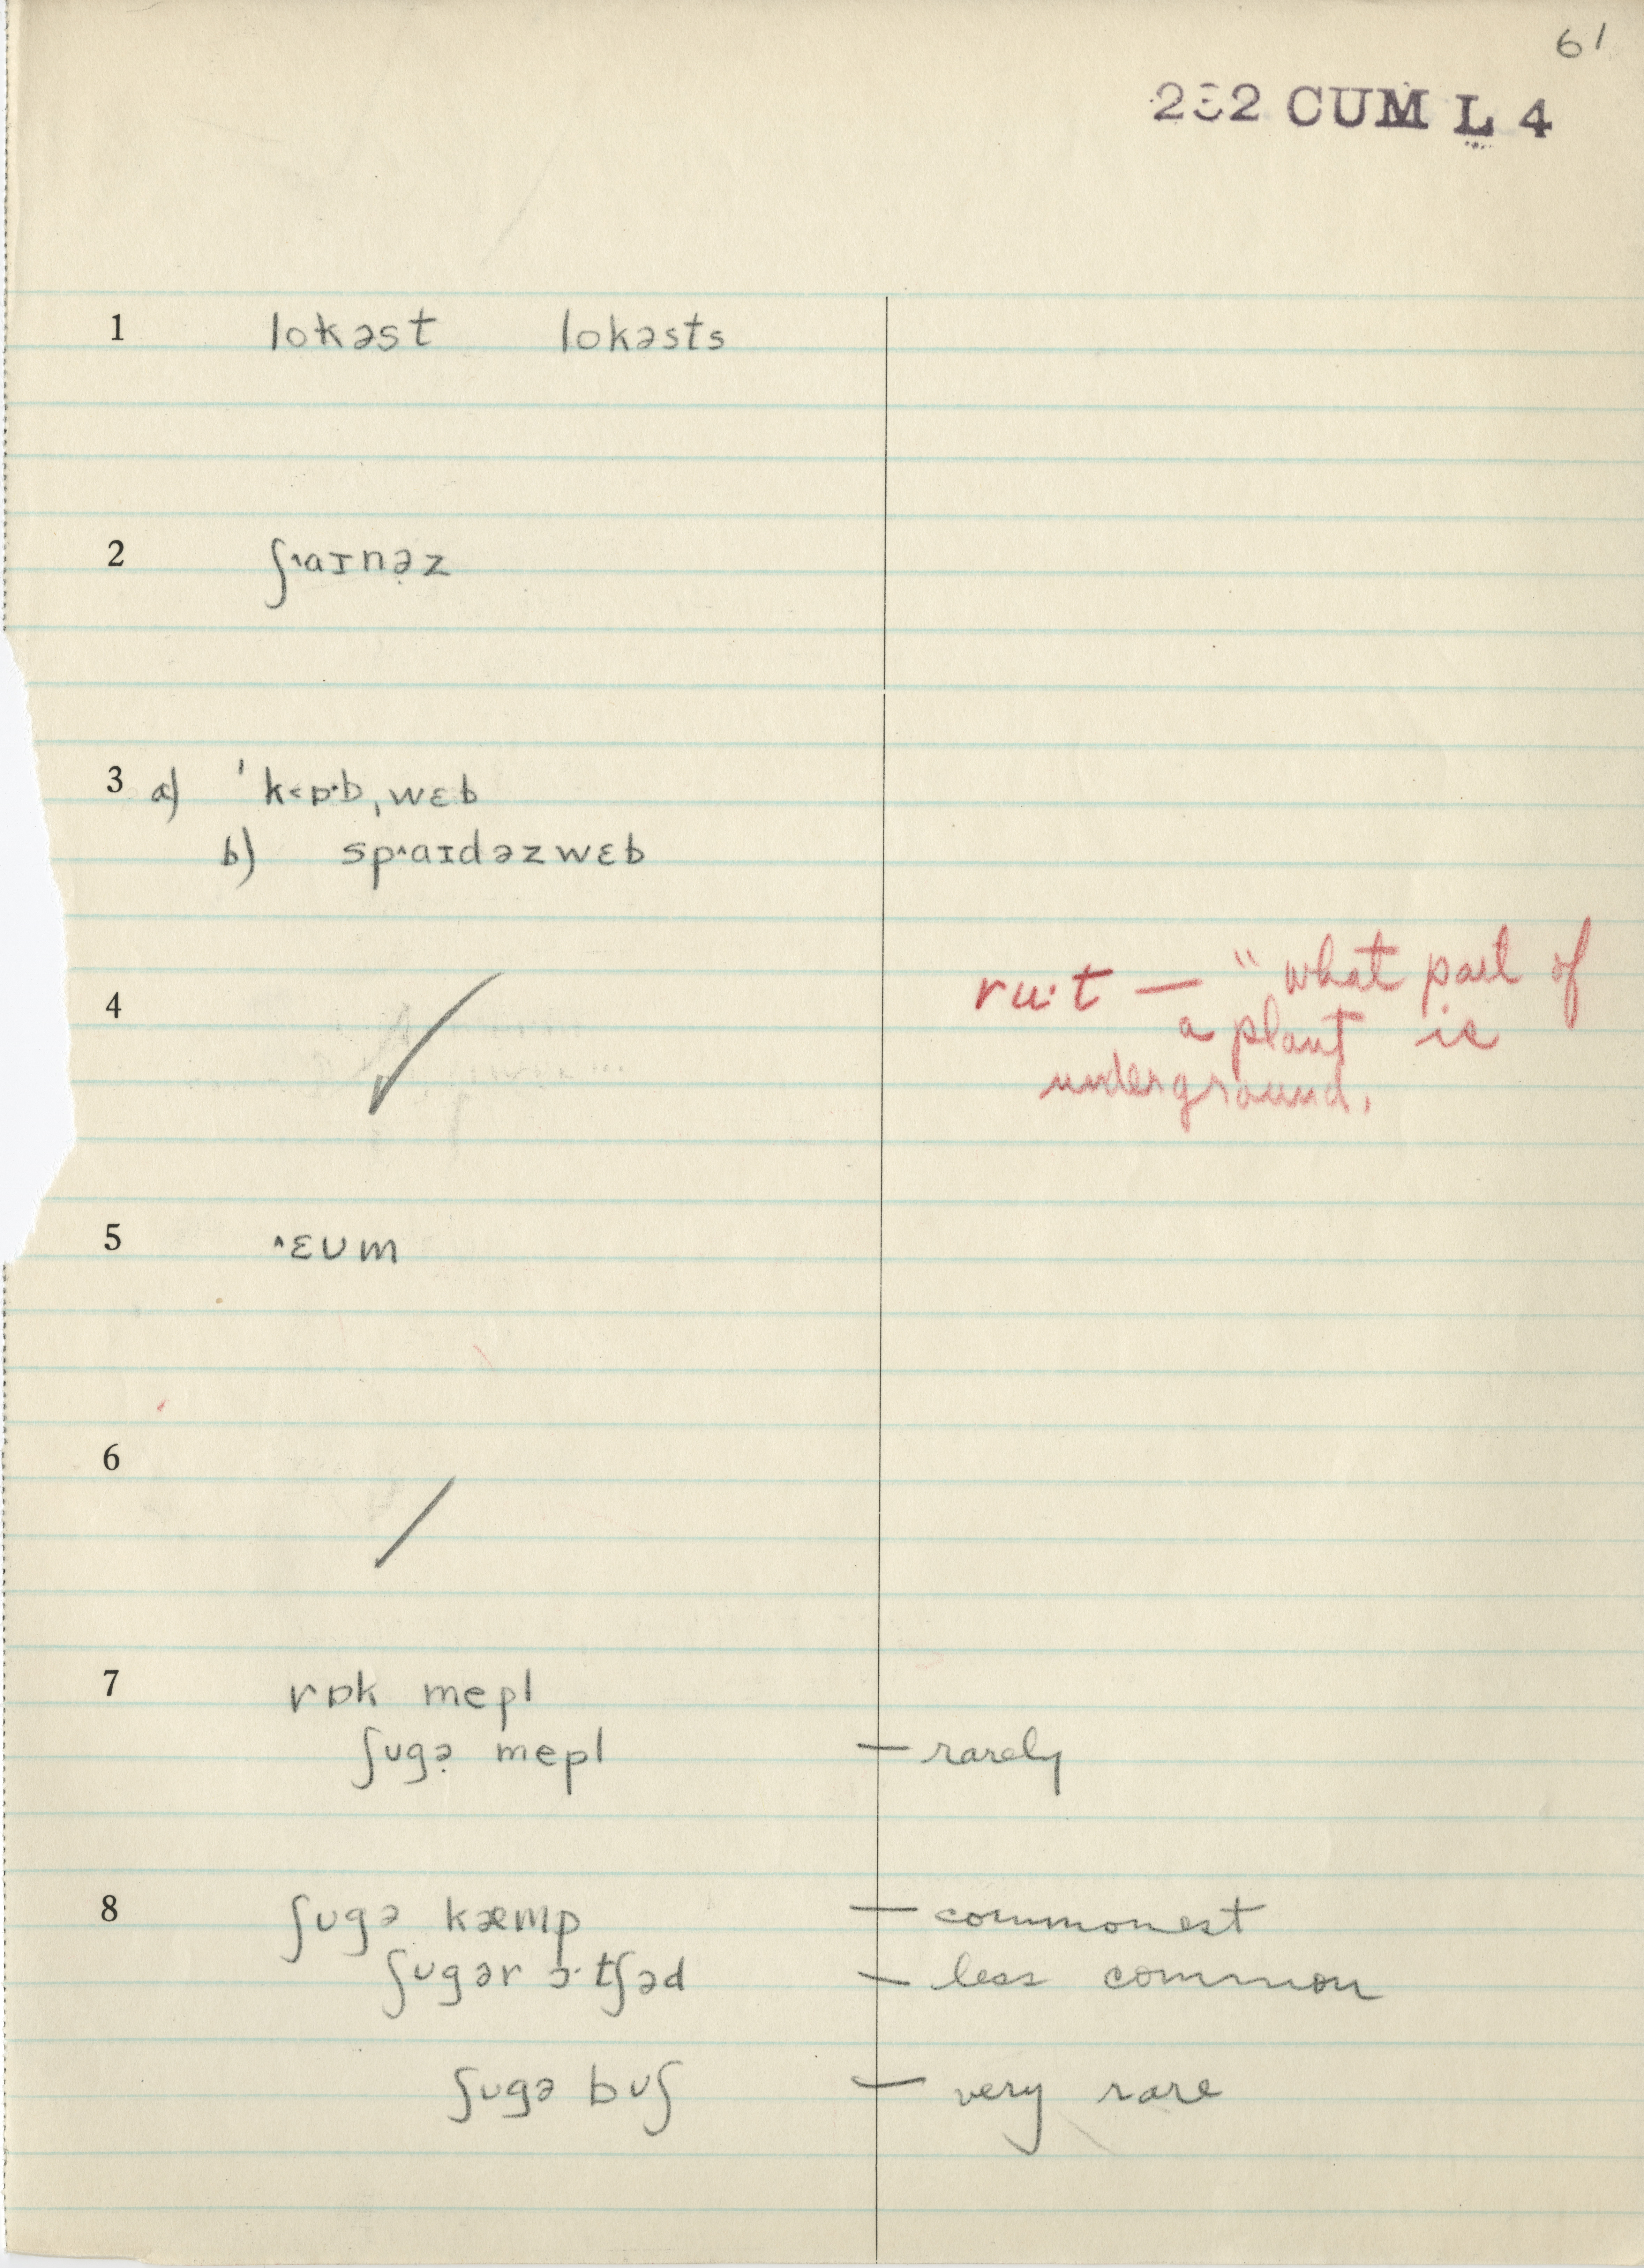 61
232 CUM L 4
1 lokəst lokəsts
2 ʃ˄aɪnə̣z
3 a) ˈk˂ɒ·bˌwɛb
b) sp˄aɪdəzwɛb
4 ✓ ru·t — "what part of
a plant is
underground.
5 ˄ɛʊm
6 /
7 rɒk mepl
ʃʊgə̣ mepl — rarely
8 ʃʊgə kæmp — commonest
ʃʊgər ɔ·tʃəd — less common
ʃʊgə bʊʃ — very rare